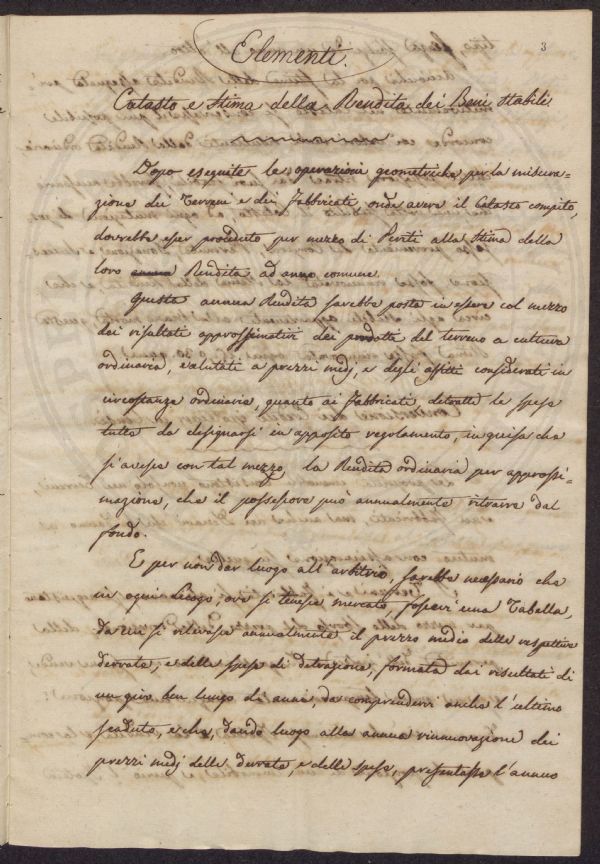 3
Elementi.
Catasto e Stima della Rendita dei Beni Stabili
Dopo eseguite le operazioni geometriche per la misura-
zione dei Terreni e dei Fabbricati onde avere il Catasto compito,
dovrebbe esser proceduto per mezzo di Periti alla Stima della
loro annua Rendita ad anno comune.
Questa annua Rendita sarebbe posta in essere col mezzo
dei risultati approssimativi dei prodotti del terreno a cultura
ordinaria, valutati a prezzi medj, e degli affitti considerati in
circostanze ordinarie, quanto ai Fabbricati detratte le spese
tutte da designarsi in apposito regolamento, in guisa che
si avesse con tal mezzo la Rendita ordinaria per approssi-
mazione, che il possessore può annualmente ritrarre dal
fondo.
E per non dar luogo all'arbitrio, sarebbe necessario che
in ogni Luogo, ove si tenesse mercato, fossevi una Tabella,
da cui si rilevasse annualmente il prezzo medio delle respettive
derrate, e delle spese di detrazione, formata dai risultati di
un giro ben lungo di anni, da comprendervi anche l'ultimo
scaduto, e che, dando luogo alla annua rinnuovazione dei
prezzi medj delle derrate, e delle spese, presentasse l'anno